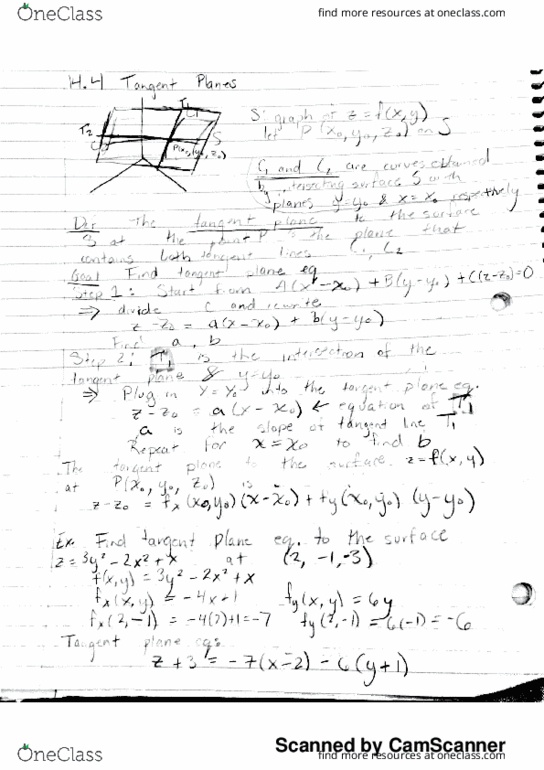 OneClass
find more resources at oneclass.com
14.4 Tangent Planes
T1
C1
T2
S
P(x0, y0, z0)
S: graph of z = f(x,y)
let P (x0, y0, z0) on S
C1 and C2 are curves obtained
by intersecting surface S with
planes y=y0 & x=x0 respectively
Def The tangent plane to the surface
S at the point P is the plane that
contains both tangent lines C1, C2
Goal Find tangent plane eq
Step 1: Start from A(x-x0) + B(y-y0) + C(z-z0)=0
⇒ divide C and rewrite
z-z0 = a(x-x0) + b(y-y0)
Find a, b
Step 2: T1 is the intersection of the
tangent plane & y=y0
⇒ Plug in y=y0 into the tangent plane eq.
z-z0 = a(x-x0) ← equation of T1
a is the slope of tangent line T1
Repeat for x=x0 to find b
The tangent plane to the surface z=f(x,y)
at P(x0, y0, z0) is
z-z0 = fx(x0,y0)(x-x0) + fy(x0,y0)(y-y0)
Ex. Find tangent plane eq. to the surface
z=3y²-2x²+x at (2,-1,-3)
f(x,y)=3y²-2x²+x
fx(x,y) = -4x+1 fy(x,y)=6y
fx(2,-1) = -4(2)+1=-7 fy(2,-1)=6(-1)=-6
Tangent plane eq:
z+3=-7(x-2)-6(y+1)
Scanned by CamScanner
OneClass
find more resources at oneclass.com